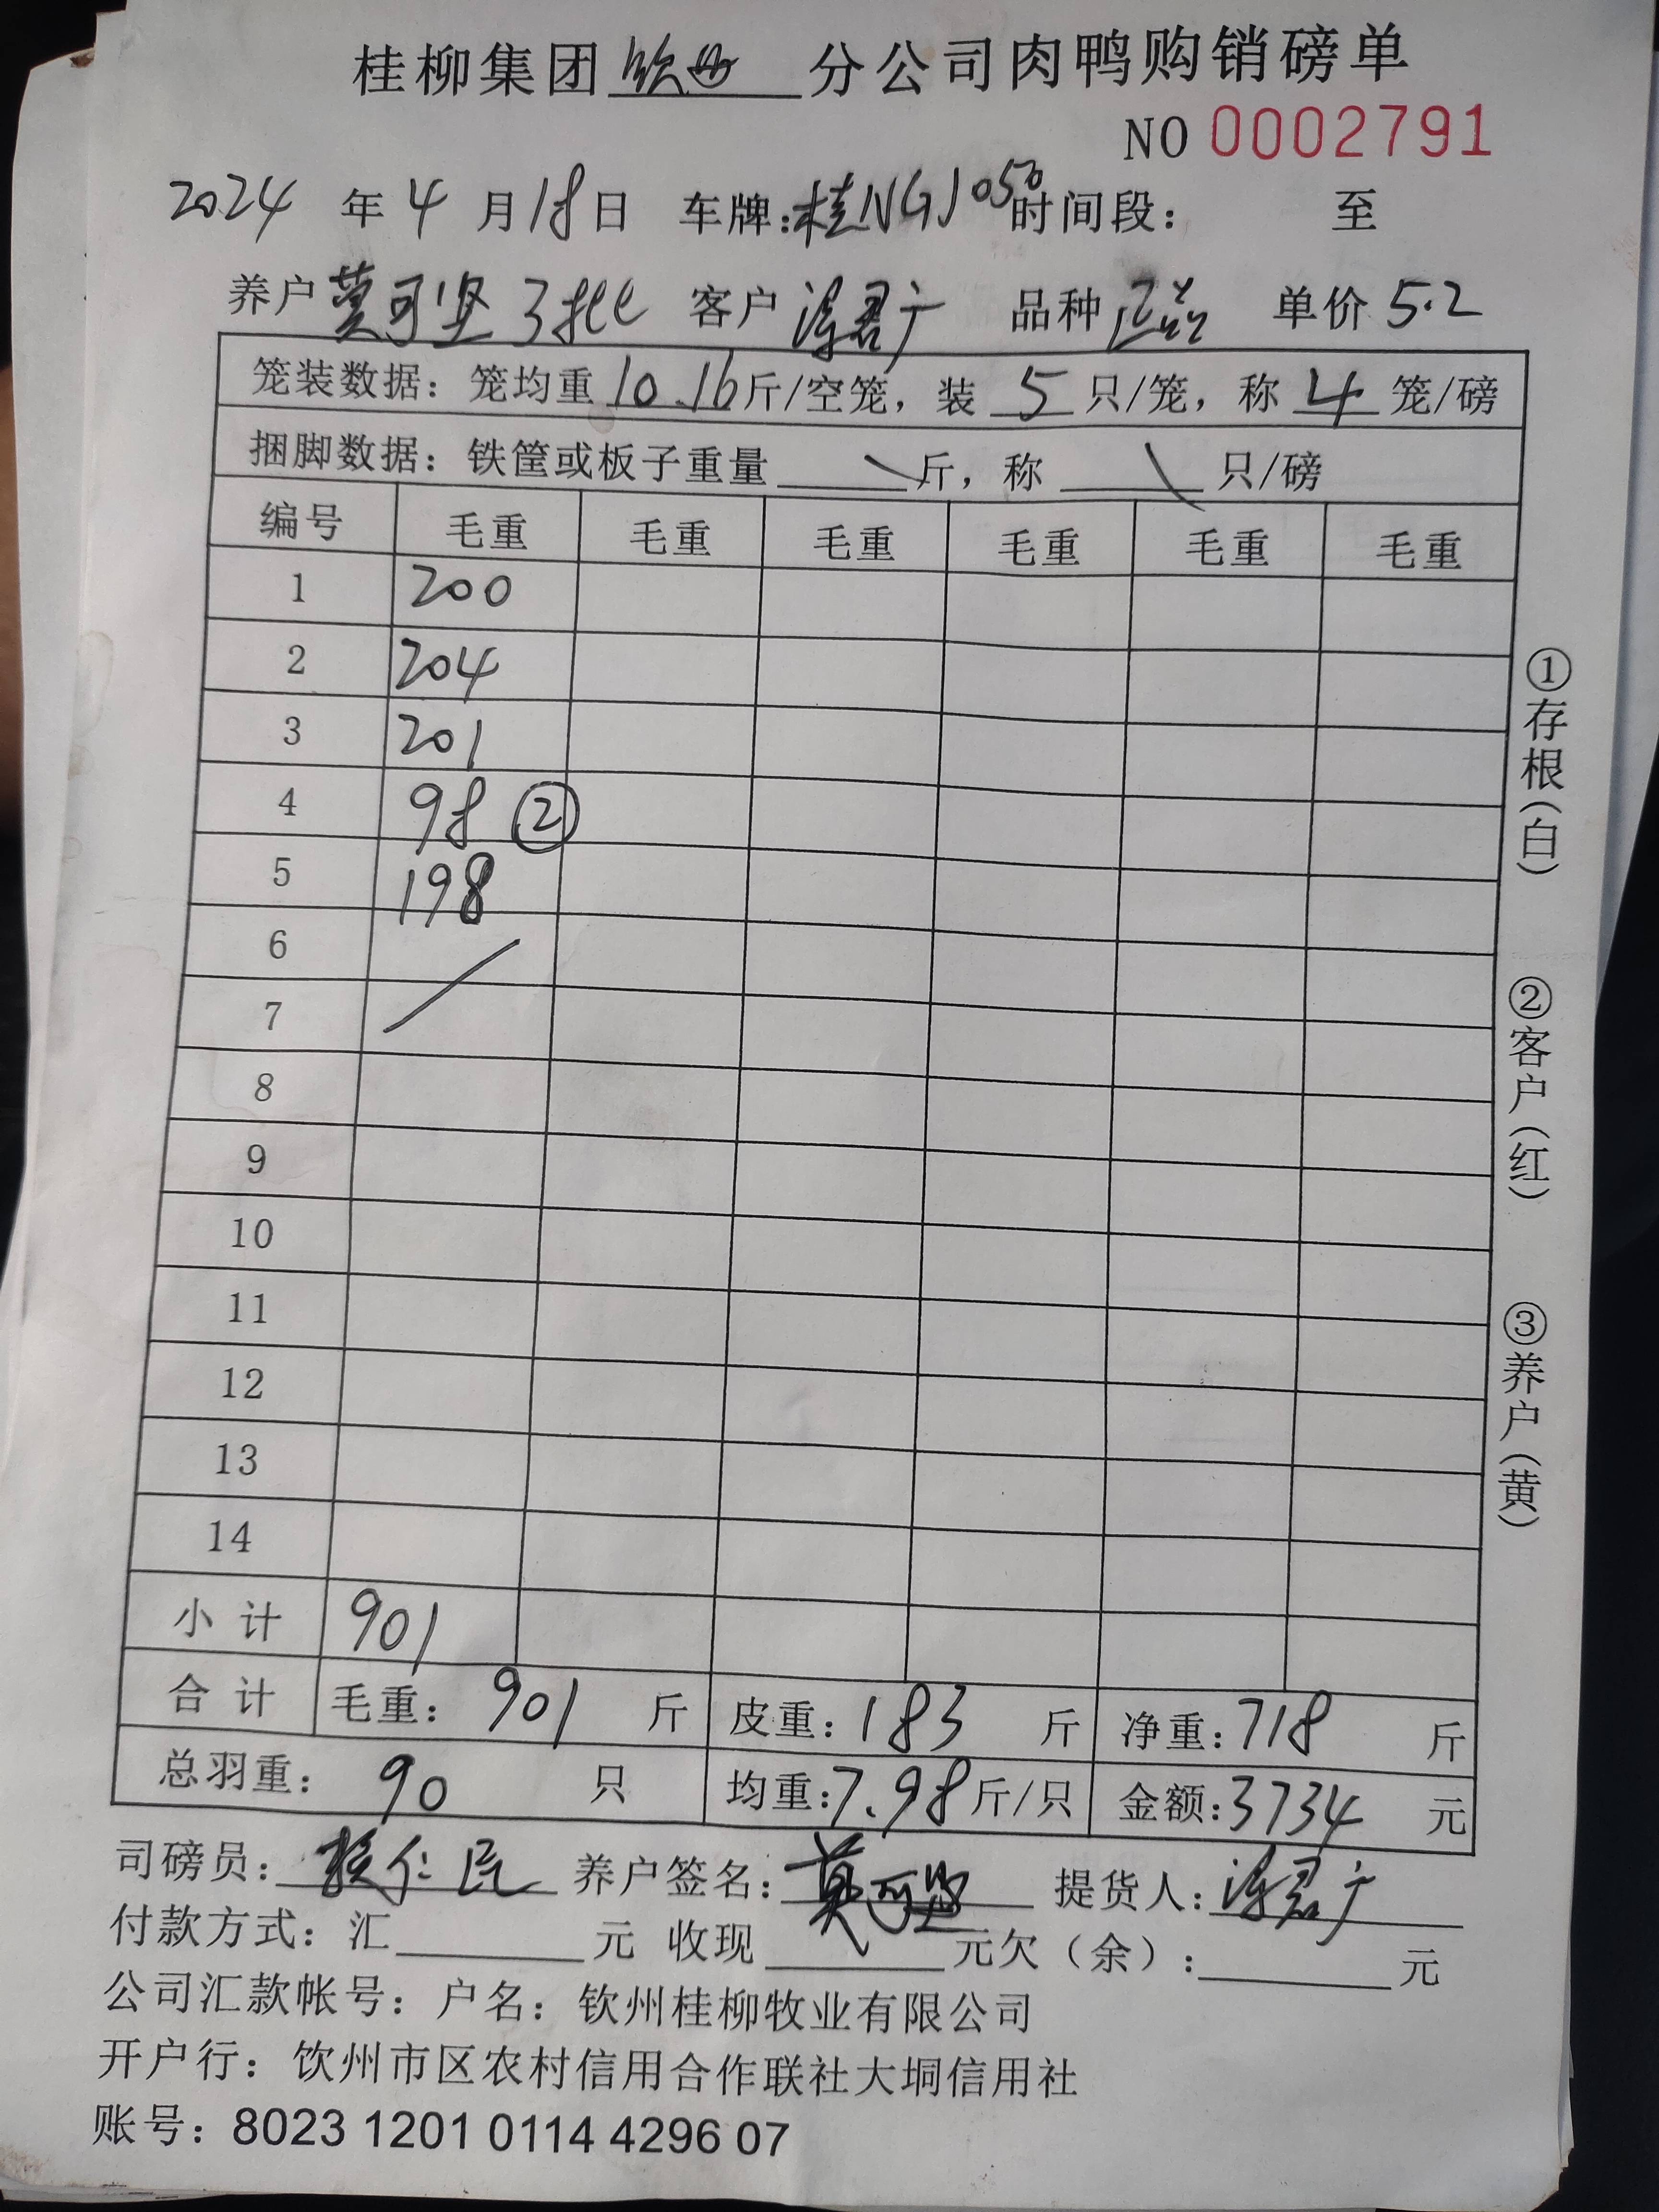 桂柳集团钦州分公司肉鸭购销磅单
NO 0002791
2024年4月18日 车牌:桂NGJ050 时间段: 至
养户莫可坚3批 客户 广 品种正品 单价5.2
笼装数据: 笼均重10.16斤/空笼, 装5只/笼, 称4笼/磅
捆脚数据: 铁筐或板子重量 \ 斤, 称 \ 只/磅
编号 毛重 毛重 毛重 毛重 毛重 毛重
1 200
2 204
3 201
4 98 ②
5 198
6
7
8
9
10
11
12
13
14
小计 901
合计 毛重: 901 斤 皮重: 183 斤 净重: 718 斤
总羽重: 90 只 均重: 7.98 斤/只 金额: 3734 元
司磅员: 仁民 养户签名: 莫可坚 提货人: 广
付款方式: 汇 元 收现 元欠(余): 元
公司汇款帐号: 户名: 钦州桂柳牧业有限公司
开户行: 饮州市区农村信用合作联社大垌信用社
账号: 8023 1201 0114 4296 07
①存根(白)
②客户(红)
③养户(黄)